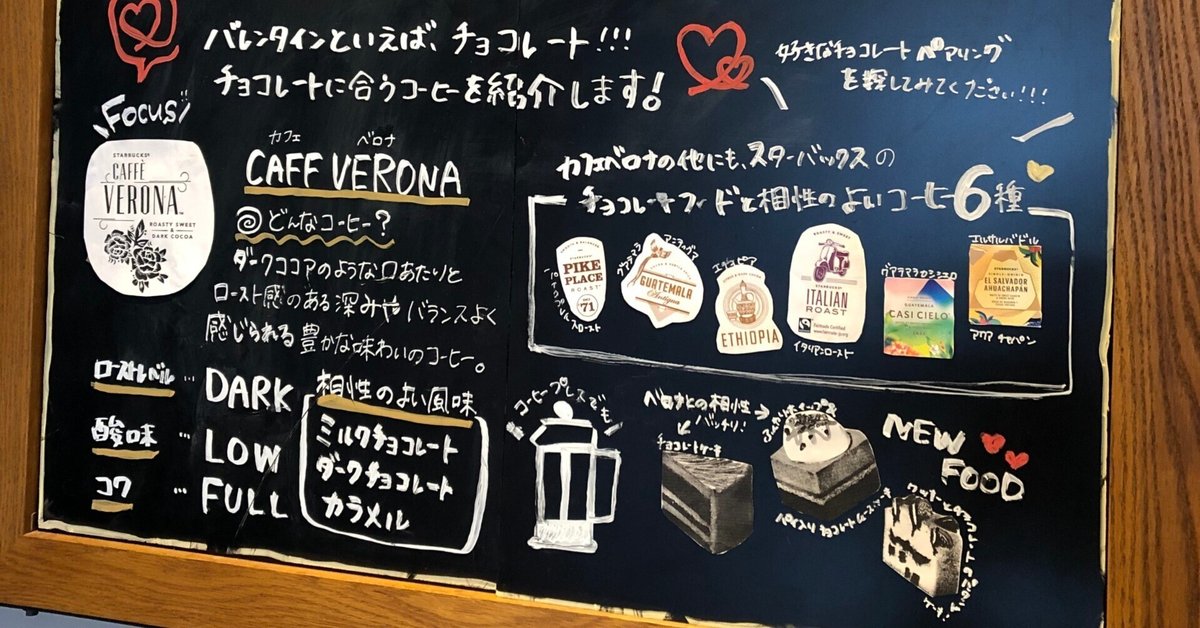 バレンタインといえば、チョコレート!!!
チョコレートに合うコーヒーを紹介します!
好きなチョコレート ペアリング
を探してみてください!!!
Focus
STARBUCKS®
CAFFÈ
VERONA
ROASTY SWEET
&
DARK COCOA
カフェ ベロナ
CAFF VERONA
どんなコーヒー?
ダークココアのような口あたりと
ロースト感のある深みや バランスよく
感じられる豊かな味わいのコーヒー。
ローストレベル … DARK
酸味 … LOW
コク … FULL
相性のよい風味
ミルクチョコレート
ダークチョコレート
カラメル
カフェベロナの他にも、スターバックスの
チョコレートフードと相性のよいコーヒー6種
PIKE
PLACE
ROAST
71
グアテマラ アンティグア
GUATEMALA
Antigua
エチオピア
ETHIOPIA
ROASTY & SWEET
STARBUCKS®
ITALIAN
ROAST
Fairtrade Certified
イタリアンロースト
グアテマラカシシエロ
GUATEMALA
CASI CIELO
エルサルバドル
STARBUCKS
EL SALVADOR
AHUACHAPAN
アワアチャパン
コーヒープレスでも
ベロナとの相性
バッチリ!
チョコレートケーキ
NEW
FOOD